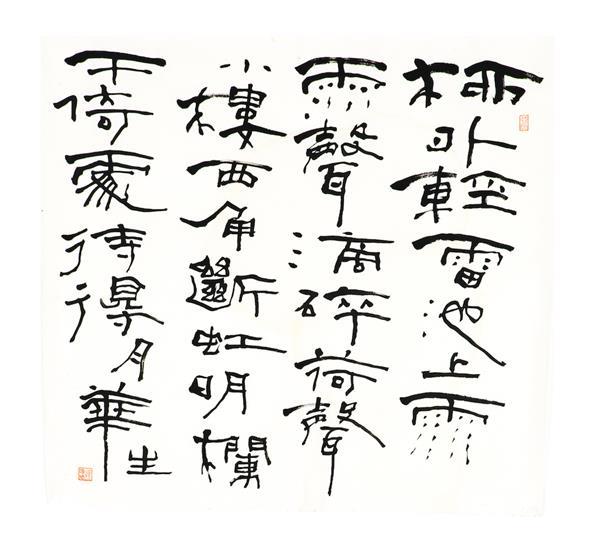 柳外輕雷池上雨
雨聲滴碎荷聲
小樓西角斷虹明欄
干倚處待得月華生